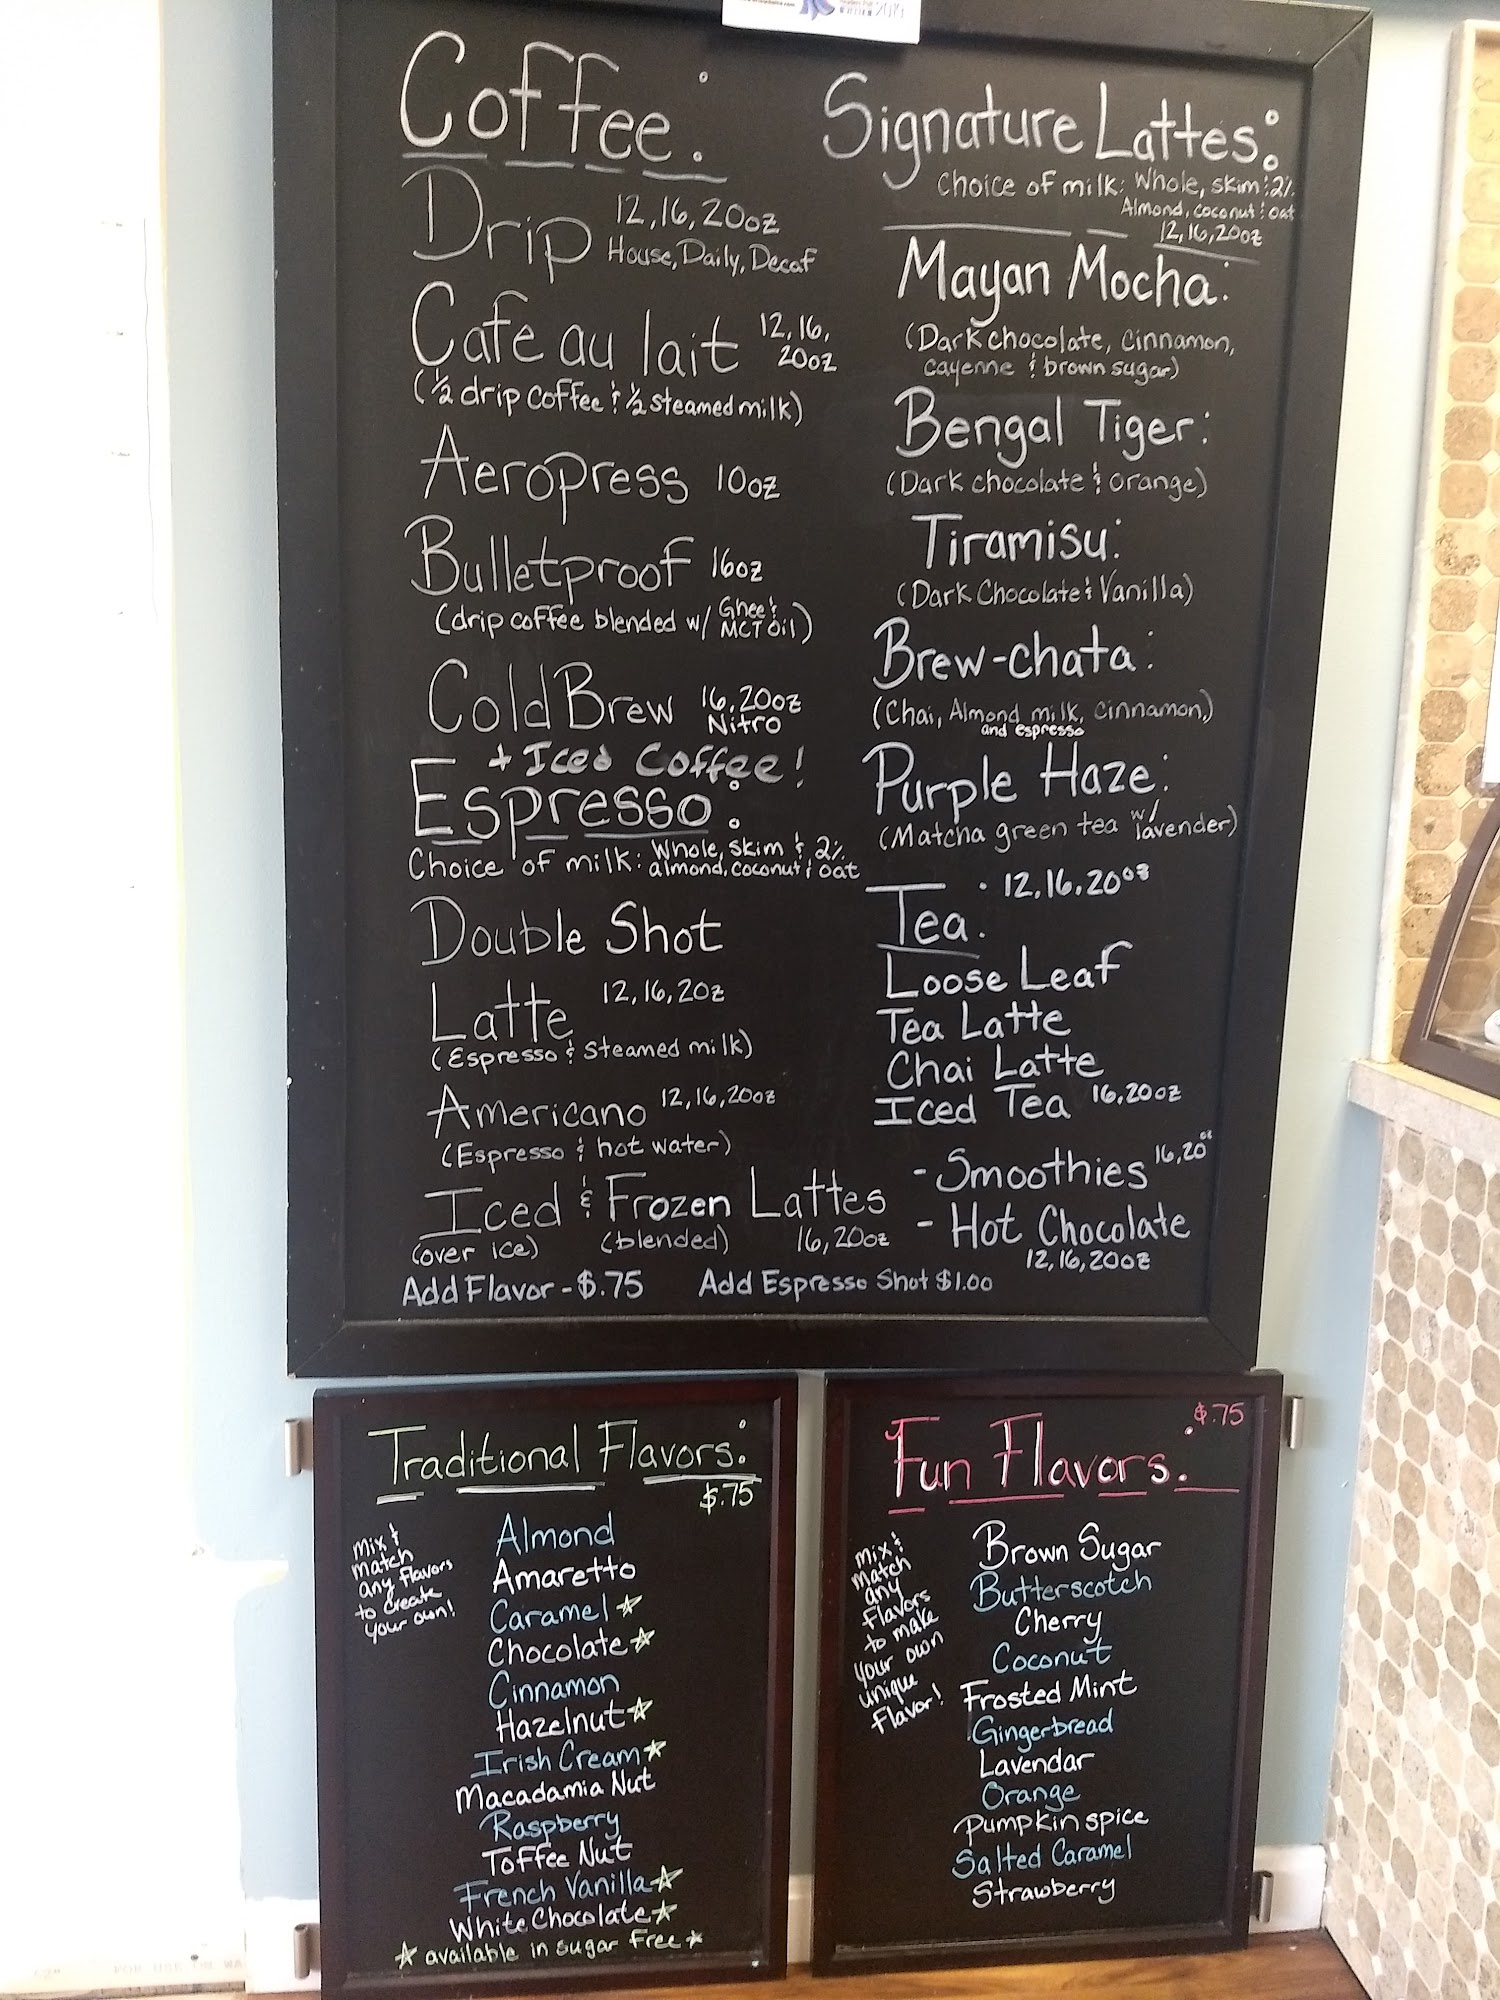 Coffee:
Drip 12,16,20oz
House, Daily, Decaf
Cafe au lait 12,16,
20oz
(1/2 drip coffee & 1/2 steamed milk)
Aeropress 10oz
Bulletproof 16oz
(drip coffee blended w/ Ghee &
MCT Oil)
Cold Brew 16,20oz
Nitro
+ Iced Coffee!
Espresso:
Choice of milk: Whole, skim & 2%
almond, coconut & oat
Double Shot
Latte 12,16,20z
(Espresso & steamed milk)
Americano 12,16,20oz
(Espresso & hot water)
Iced & Frozen Lattes
(over ice) (blended) 16,20oz
Add Flavor - $.75 Add Espresso Shot $1.00
Signature Lattes:
Choice of milk: Whole, skim & 2%
Almond, coconut & oat
12,16,20oz
Mayan Mocha:
(Dark chocolate, cinnamon,
cayenne & brown sugar)
Bengal Tiger:
(Dark chocolate & orange)
Tiramisu:
(Dark Chocolate & Vanilla)
Brew-chata:
(Chai, Almond milk, cinnamon,)
and espresso
Purple Haze:
(Matcha green tea w/ lavender)
Tea: 12,16,20oz
Loose Leaf
Tea Latte
Chai Latte
Iced Tea 16,20oz
- Smoothies 16,20oz
- Hot Chocolate
12,16,20oz
Traditional Flavors:
$.75
Mix &
match
any flavors
to create
your own!
Almond
Amaretto
Caramel ☆
Chocolate ☆
Cinnamon
Hazelnut ☆
Irish Cream ☆
Macadamia Nut
Raspberry
Toffee Nut
French Vanilla ☆
White Chocolate ☆
☆ available in sugar free ☆
$.75
Fun Flavors:
Mix &
Match
any
flavors
to make
your own
unique
flavor!
Brown Sugar
Butterscotch
Cherry
Coconut
Frosted Mint
Gingerbread
Lavendar
Orange
Pumpkin spice
Salted Caramel
Strawberry